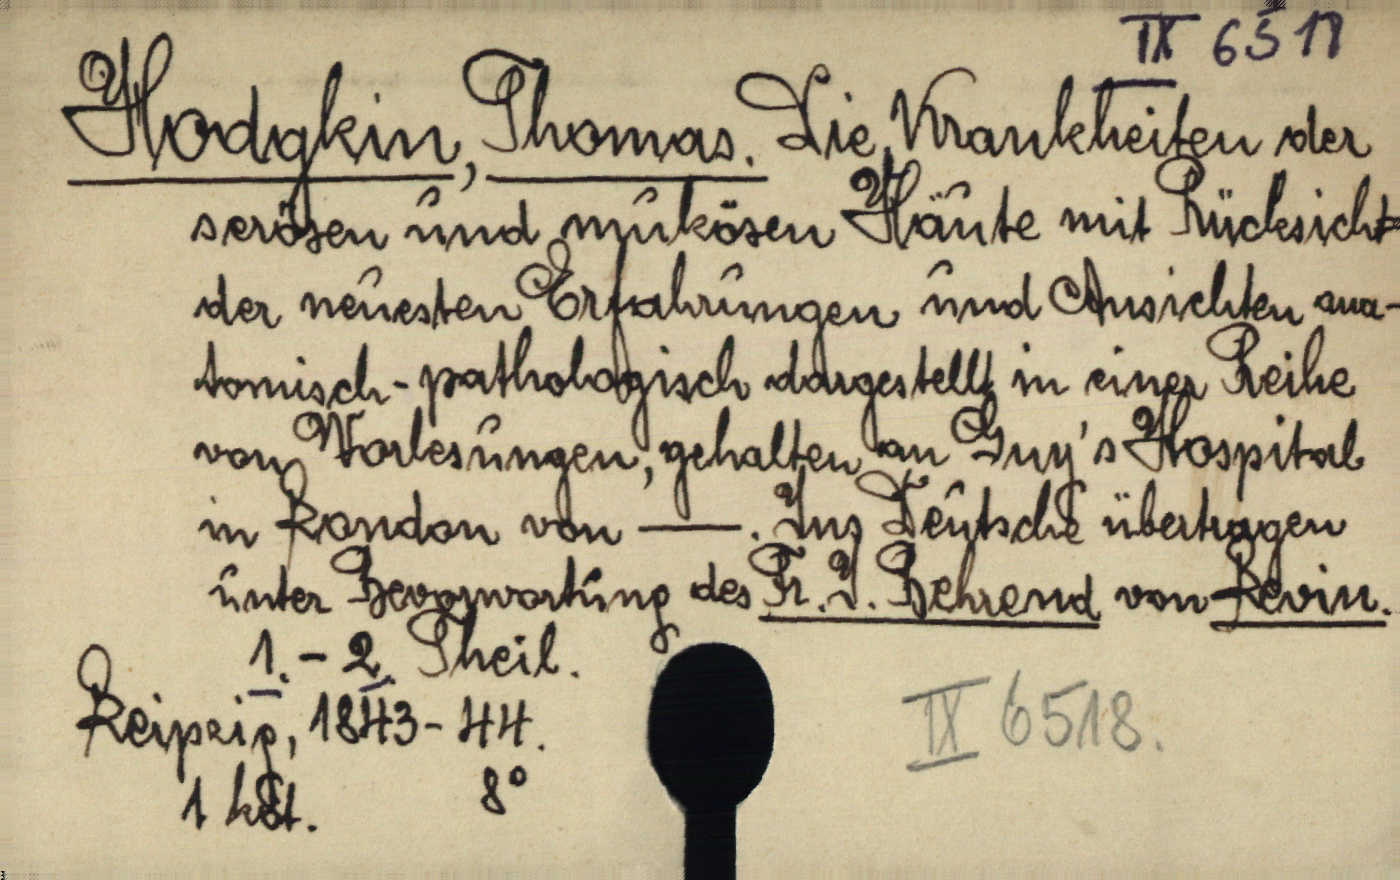 IX 6518
Hodgkin, Thomas. Die Krankheiten der
serösen und mukösen Häute mit Rücksicht
der neuesten Erfahrungen und Ansichten ana-
tomisch-pathologisch dargestellt in einer Reihe
von Vorlesungen, gehalten an Guy's Hospital
in London von ——. Ins Deutsche übertragen
unter Bevorwortung des Fr. J. Behrend von Levin.
1.-2. Theil.
Leipzig, 1843-44.
IX 6518.
1 köt. 8°